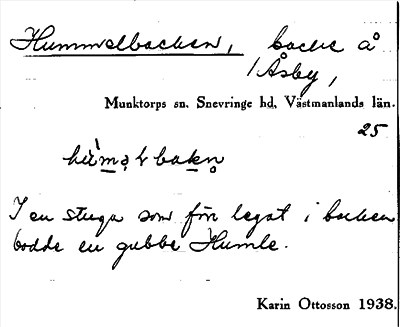 Hummelbacken, backe å
Åsby,
Munktorps sn. Snevringe hd, Västmanlands län.
25
I en stuga som förr legat i backen
bodde en gubbe Humle.
Karin Ottosson 1938.